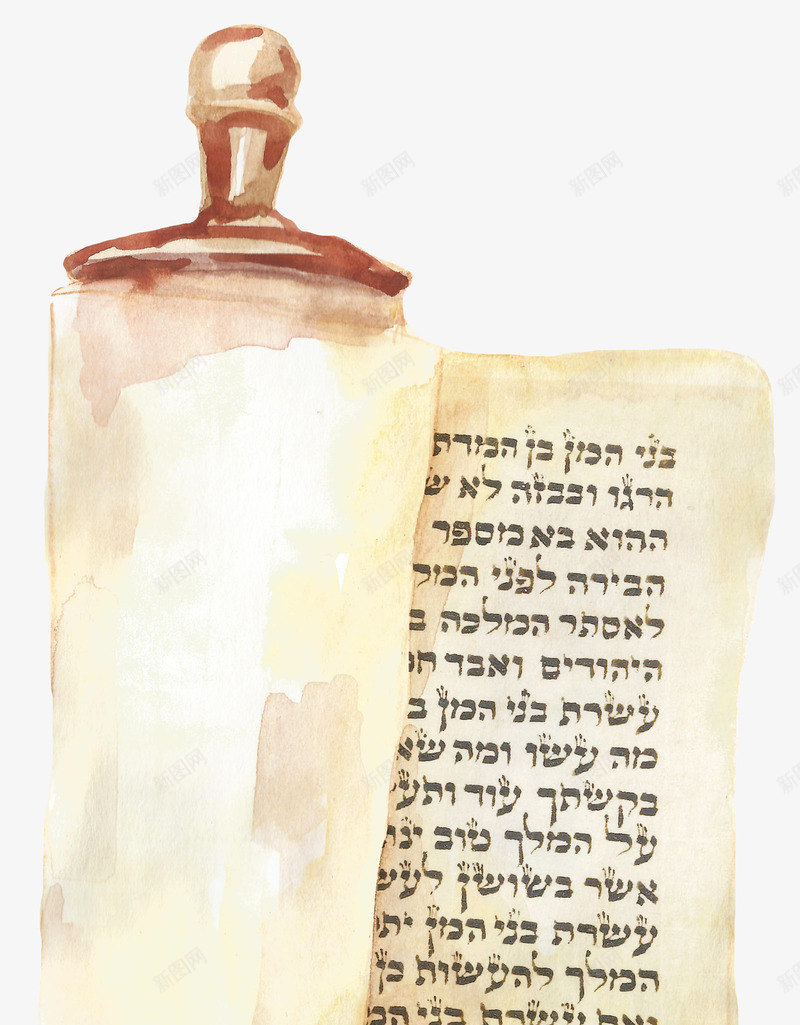 בני המן בן המדת
הרגו ובבזה לא ש
ההוא בא מספר
הבירה לפני המל
לאסתר המלכה ב
היהודים ואבד ח
עשרת בני המן ב
מה עשו ומה שא
בקשתך עוד ותע
על המלך טוב ינ
אשר בשושן לעש
עשרת בני המן ית
המלך להעשות כן
ואת עשרת בני המ